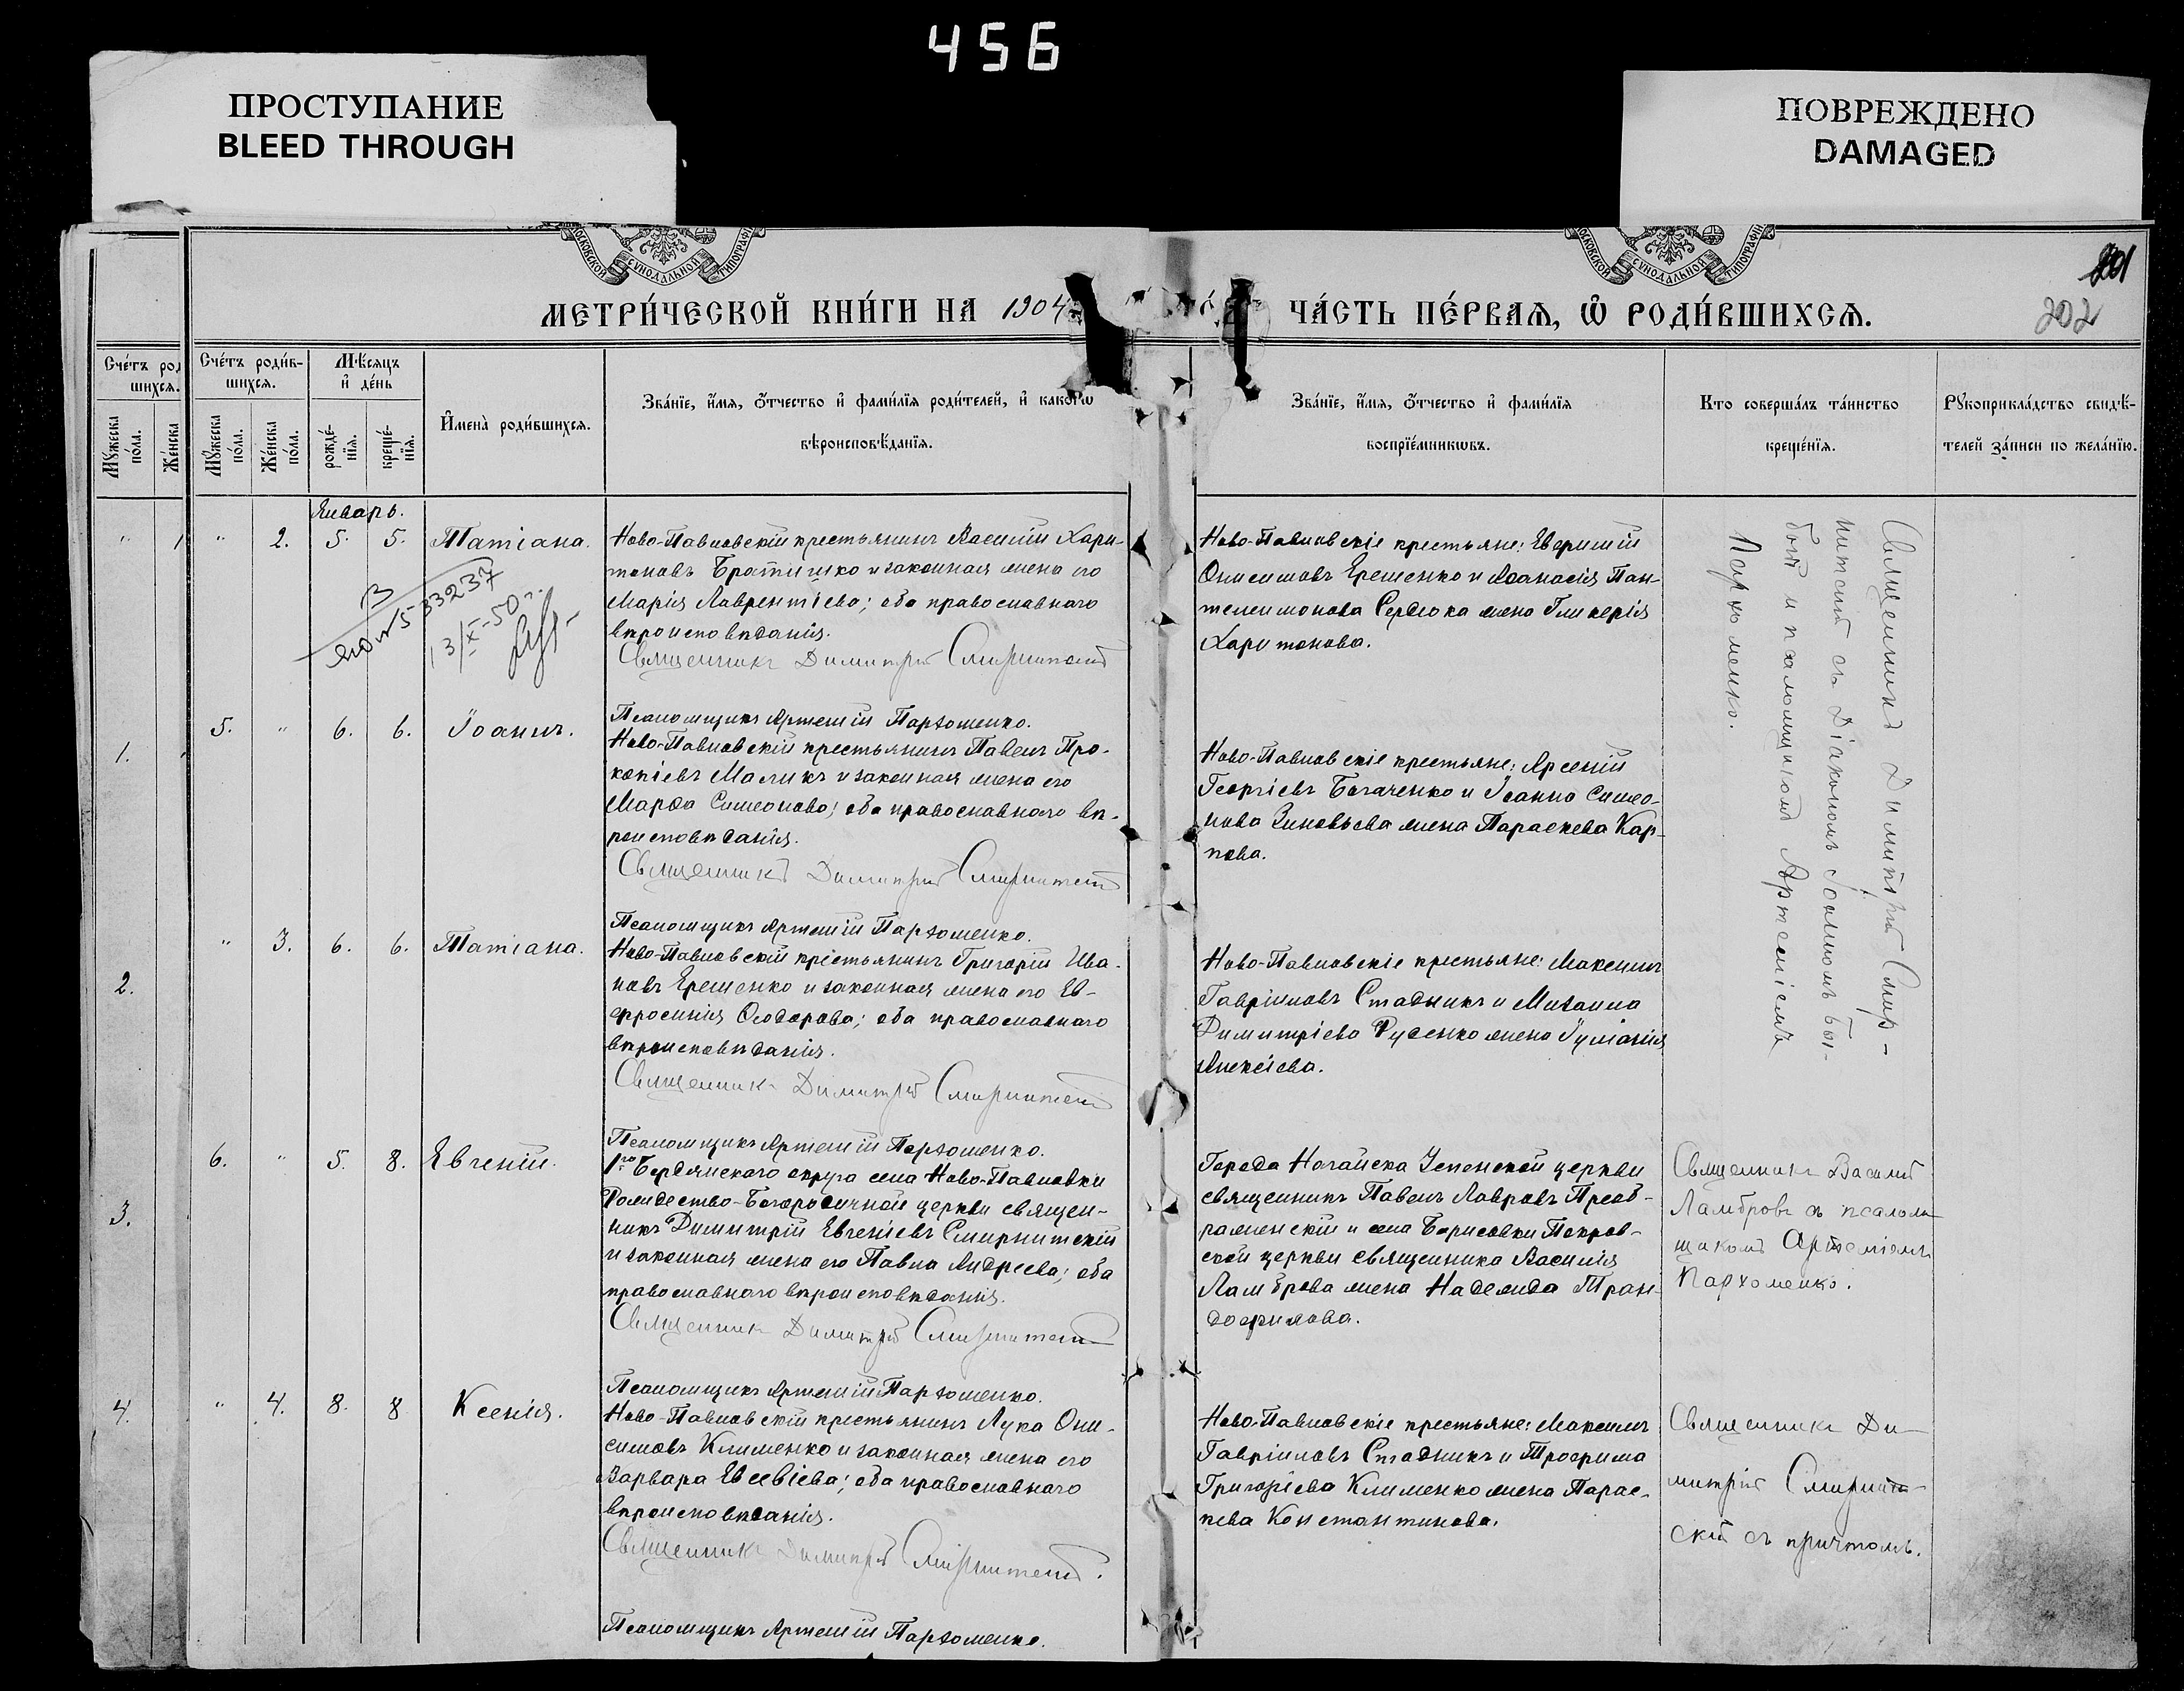 456
ПРОСТУПАНИЕ
BLEED THROUGH
ПОВРЕЖДЕНО
DAMAGED
МОСКОВСКОЙ СѴНОДАЛЬНОЙ ТИПОГРАФІИ
МОСКОВСКОЙ СѴНОДАЛЬНОЙ ТИПОГРАФІИ
201
202
МЕТРИ́ЧЕСКОЙ КНИ́ГИ НА 1904
ЧА́СТЬ ПЕ́РВАЯ, Ѡ РОДИ́ВШИХСЯ.
Сче́тъ род
шихся.
Мꙋ́жеска по́ла.
Же́нска
Сче́тъ роди́в-
шихся.
Мꙋ́жеска по́ла.
Же́нска по́ла.
Мѣ́сяцъ
и҆ де́нь
рожде́-
нїя.
креще́-
нїя.
И҆мена̀ роди́вшихся.
Зва́нїе, и҆́мя, ѻ҆́тчество и҆ фами́лїя роди́телей, и҆ како́гѡ
вѣроисповѣ́данїя.
Зва́нїе, и҆́мя, ѻ҆́тчество и҆ фами́лїя
воспрїе́мникѡвъ.
Кто соверша́лъ та́инство
креще́нїя.
Рꙋкоприкла́дство свидѣ́-
телей за́писи по жела́нїю.
Январь.
" 2. 5. 5. Татіана.
Ново-Павловскій крестьянинъ Василій Хари-
тоновъ Братишко и законная жена его
Марія Лаврентіева; оба православнаго
вѣроисповѣданія.
Священникъ Димитрій Смирнитскій
Псаломщикъ Артемій Пархоменко.
Ново-Павловскіе крестьяне: Евфимій
Онисимовъ Ерешенко и Аѳанасія Пан-
телеимонова Сердюка жена Гликерія
Харитонова.
Священникъ Димитрій Смир-
нитскій съ Діакономъ Іоанномъ Бы-
и псаломщикомъ Артеміемъ
Пархоменко.
533237
13/X-50 г.
5. " 6. 6. Іоаннъ.
Ново-Павловскій крестьянинъ Павелъ Про-
копіевъ Маликъ и законная жена его
Марѳа Симеонова; оба православнаго вѣ-
роисповѣданія.
Священникъ Димитрій Смирнитскій
Псаломщикъ Артемій Пархоменко.
Ново-Павловскіе крестьяне: Арсеній
Георгіевъ Богаченко и Іоанна Симео-
нова Зиновьева жена Параскева Кар-
пова.
" 3. 6. 6. Татіана.
Ново-Павловскій крестьянинъ Григорій Ива-
новъ Ерешенко и законная жена его Ев-
фросинія Ѳеодорова; оба православнаго
вѣроисповѣданія.
Священникъ Димитрій Смирнитскій
Псаломщикъ Артемій Пархоменко.
Ново-Павловскіе крестьяне: Максимъ
Гавріиловъ Стадникъ и Михаила
Димитріева Руденко жена Іуліанія
Алексіева.
6. " 5. 8. Евгеній.
1го Бердянскаго округа села Ново-Павловки
Рождество-Богородичной церкви священ-
никъ Димитрій Евгеніевъ Смирнитскій
и законная жена его Павла Андреева; оба
православнаго вѣроисповѣданія.
Священникъ Димитрій Смирнитскій
Псаломщикъ Артемій Пархоменко.
Города Ногайска Успенской церкви
священникъ Павелъ Лавровъ Преоб-
раженскій и села Борисовки Покров-
ской церкви священника Василія
Ламброва жена Надежда Тран-
дафилова.
Священникъ Василій
Ламбровъ съ псалом-
щикомъ Артеміемъ
Пархоменко.
" 4. 8. 8 Ксенія.
Ново-Павловскій крестьянинъ Лука Они-
симовъ Клименко и законная жена его
Варвара Евсевіева; оба православнаго
вѣроисповѣданія.
Священникъ Димитрій Смирнитскій.
Псаломщикъ Артемій Пархоменко.
Ново-Павловскіе крестьяне: Максимъ
Гавріиловъ Стадникъ и Трофима
Григоріева Клименко жена Парас-
кева Константинова.
Священникъ Ди-
митрій Смирнит-
скій съ причтомъ.
1.
2.
3.
4.